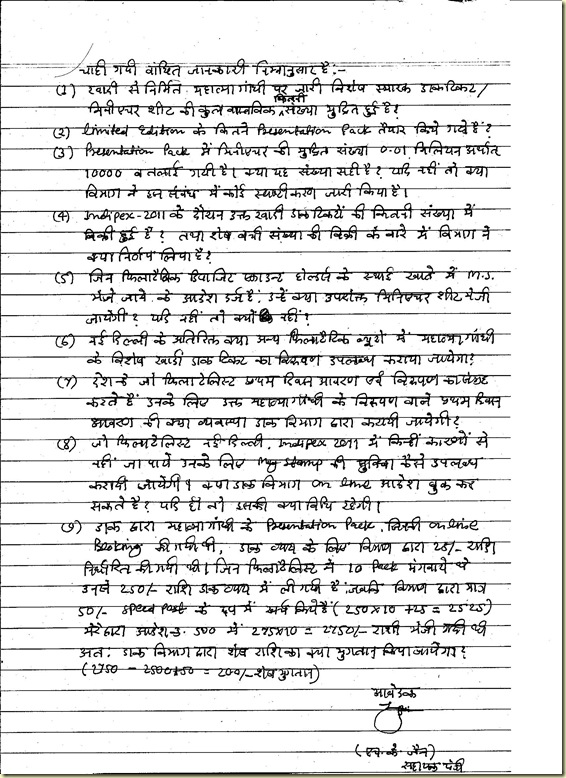 चाही गयी वांछित जानकारी निम्नानुसार है:-
(1) खादी से निर्मित महात्मा गांधी पर जारी विशेष स्मारक डाकटिकट/
मिनीएचर शीट की कुल वास्तविक कितनी संख्या मुद्रित हुई है?
(2) Limited Edition के कितने Presentation Pack तैयार किये गये हैं?
(3) Presentation Pack में मिनीएचर की मुद्रित संख्या 0.01 मिलियन अर्थात
10000 बतलाई गयी है। क्या यह संख्या सही है? यदि नहीं तो क्या
विभाग ने इस संबंध में कोई स्पष्टीकरण जारी किया है।
(4) Indipex-2011 के दौरान उक्त खादी डाकटिकटों की कितनी संख्या में
बिक्री हुई है? तथा शेष बची संख्या की बिक्री के बारे में विभाग ने
क्या निर्णय लिया है?
(5) जिन फिलाटैलिक डिपाजिट एकाउन्ट होल्डर्स के स्थाई खाते में M.S.
भेजे जाने के आदेश दर्ज हैं: उन्हें क्या उपरोक्त मिनिएचर शीट भेजी
जायेगी? यदि नहीं तो क्यों नहीं?
(6) नई दिल्ली के अतिरिक्त क्या अन्य फिलाटैलिक ब्यूरो में महात्मा गांधी
के विशेष खादी डाक टिकट का विरूपण उपलब्ध कराया जायेगा?
(7) देश के जो फिलाटेलिस्ट प्रथम दिवस आवरण एवं विरूपण का संग्रह
करते हैं उनके लिए उक्त महात्मा गांधी के विरूपण वाले प्रथम दिवस
आवरण की क्या व्यवस्था डाक विभाग द्वारा करायी जायेगी?
(8) जो फिलाटेलिस्ट नई दिल्ली, Indipex 2011 में किन्हीं कारणों से
नहीं जा पाये उनके लिए My Stamp की सुविधा कैसे उपलब्ध
करायी जायेगी? क्या डाक विभाग on line आदेश बुक कर
सकते हैं? यदि हाँ तो इसकी क्या विधि रहेगी।
(9) डाक द्वारा महात्मा गांधी के Presentation Pack, जिसकी online
Booking की गयी थी, डाक व्यय के लिए विभाग द्वारा 25/- राशि
निर्धारित की गयी थी। जिन फिलाटेलिस्ट ने 10 Pack मंगवाये थे
उनसे 250/- राशि डाक व्यय में ली गयी है जबकि विभाग द्वारा मात्र
50/- Speed Post के रूप में खर्च किये हैं (250x10 +25 = 2525)
मेरे द्वारा आदेश क्र. 500 में 275x10 = 2750/- राशी भेजी गयी थी
अत: डाक विभाग द्वारा शेष राशि का क्या भुगतान किया जायेगा?
(2750 - 2500+50 = 200/- शेष भुगतान)
आवेदक
(एच. के. जैन)